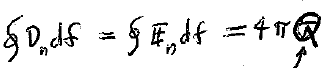 ∮ D_n df = ∮ E_n df = 4π